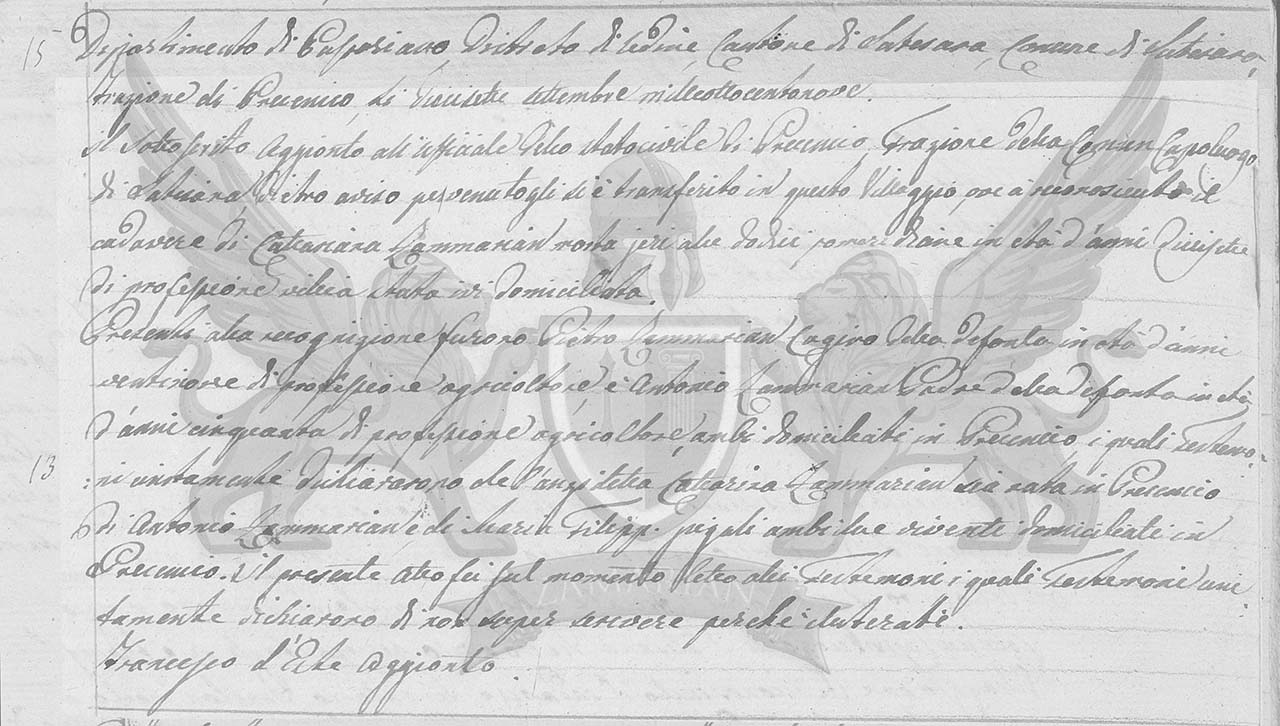 15
Dipartimento di Passariano Distreto di Udine, Cantone di Latisana, Comune di Latisana,
Frazione di Precenico, li diecisette settembre milleottocentonove.
Il Sottoscrito Aggionto all'Officiale dello stato civile di Precenico Frazione della Comun Capoluogo
di Latisana, dietro aviso pervenutogli si è transferito in questo Villaggio, ove à reconosciuto il
cadavere di Catarina Zammarian morta jeri alle dodici pomeridiane in età d'anni diecisette
di professione villica stata ivi domiciliata.
Presenti alla recognizione furono Pietro Zammarian Cugino della defonta in età d'anni
ventinove di professione agricoltore, e Antonio Zammarian Padre della defonta in età
d'anni cinquanta di professione agricoltore ambi domiciliati in Precenico, i quali Testemo-
13
:ni unitamente dichiararono che l'anzidetta Catarina Zammarian sia nata in Precenico
di Antonio Zammarian e di Maria Filippi jugali ambidue viventi domiciliati in
Precenico. Il presente Atto fei sul momento letto alli Testemoni, i quali Testemoni uni
tamente dichiararono di non saper scrivere perchè iluterati.
Francesco d'Este Aggionto
ZAMMARIAN